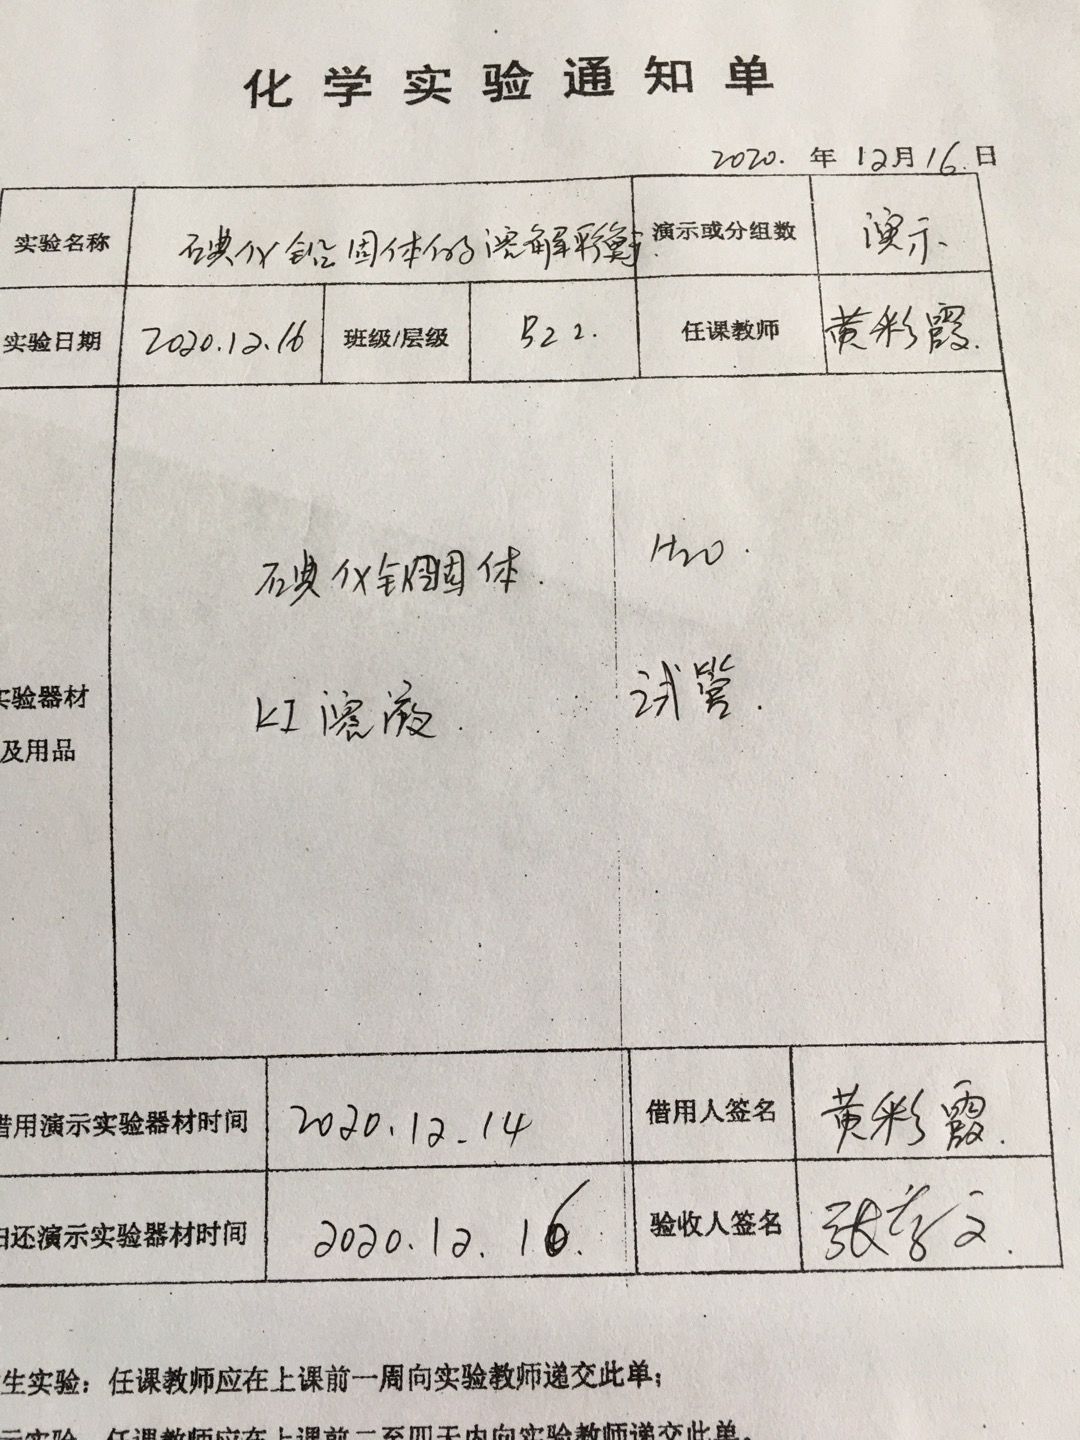 化学实验通知单
2020. 年 12月16.日
实验名称 碘化铅固体的溶解平衡. 演示或分组数 演示.
实验日期 2020.12.16 班级/层级 B22. 任课教师 黄彩霞.
碘化铅固体. H2O.
实验器材
KI溶液. 试管.
及用品
借用演示实验器材时间 2020.12.14 借用人签名 黄彩霞.
归还演示实验器材时间 2020.12.16. 验收人签名 张
生实验：任课教师应在上课前一周向实验教师递交此单；
示实验 任课教师应在上课前二至四天内向实验教师递交此单。